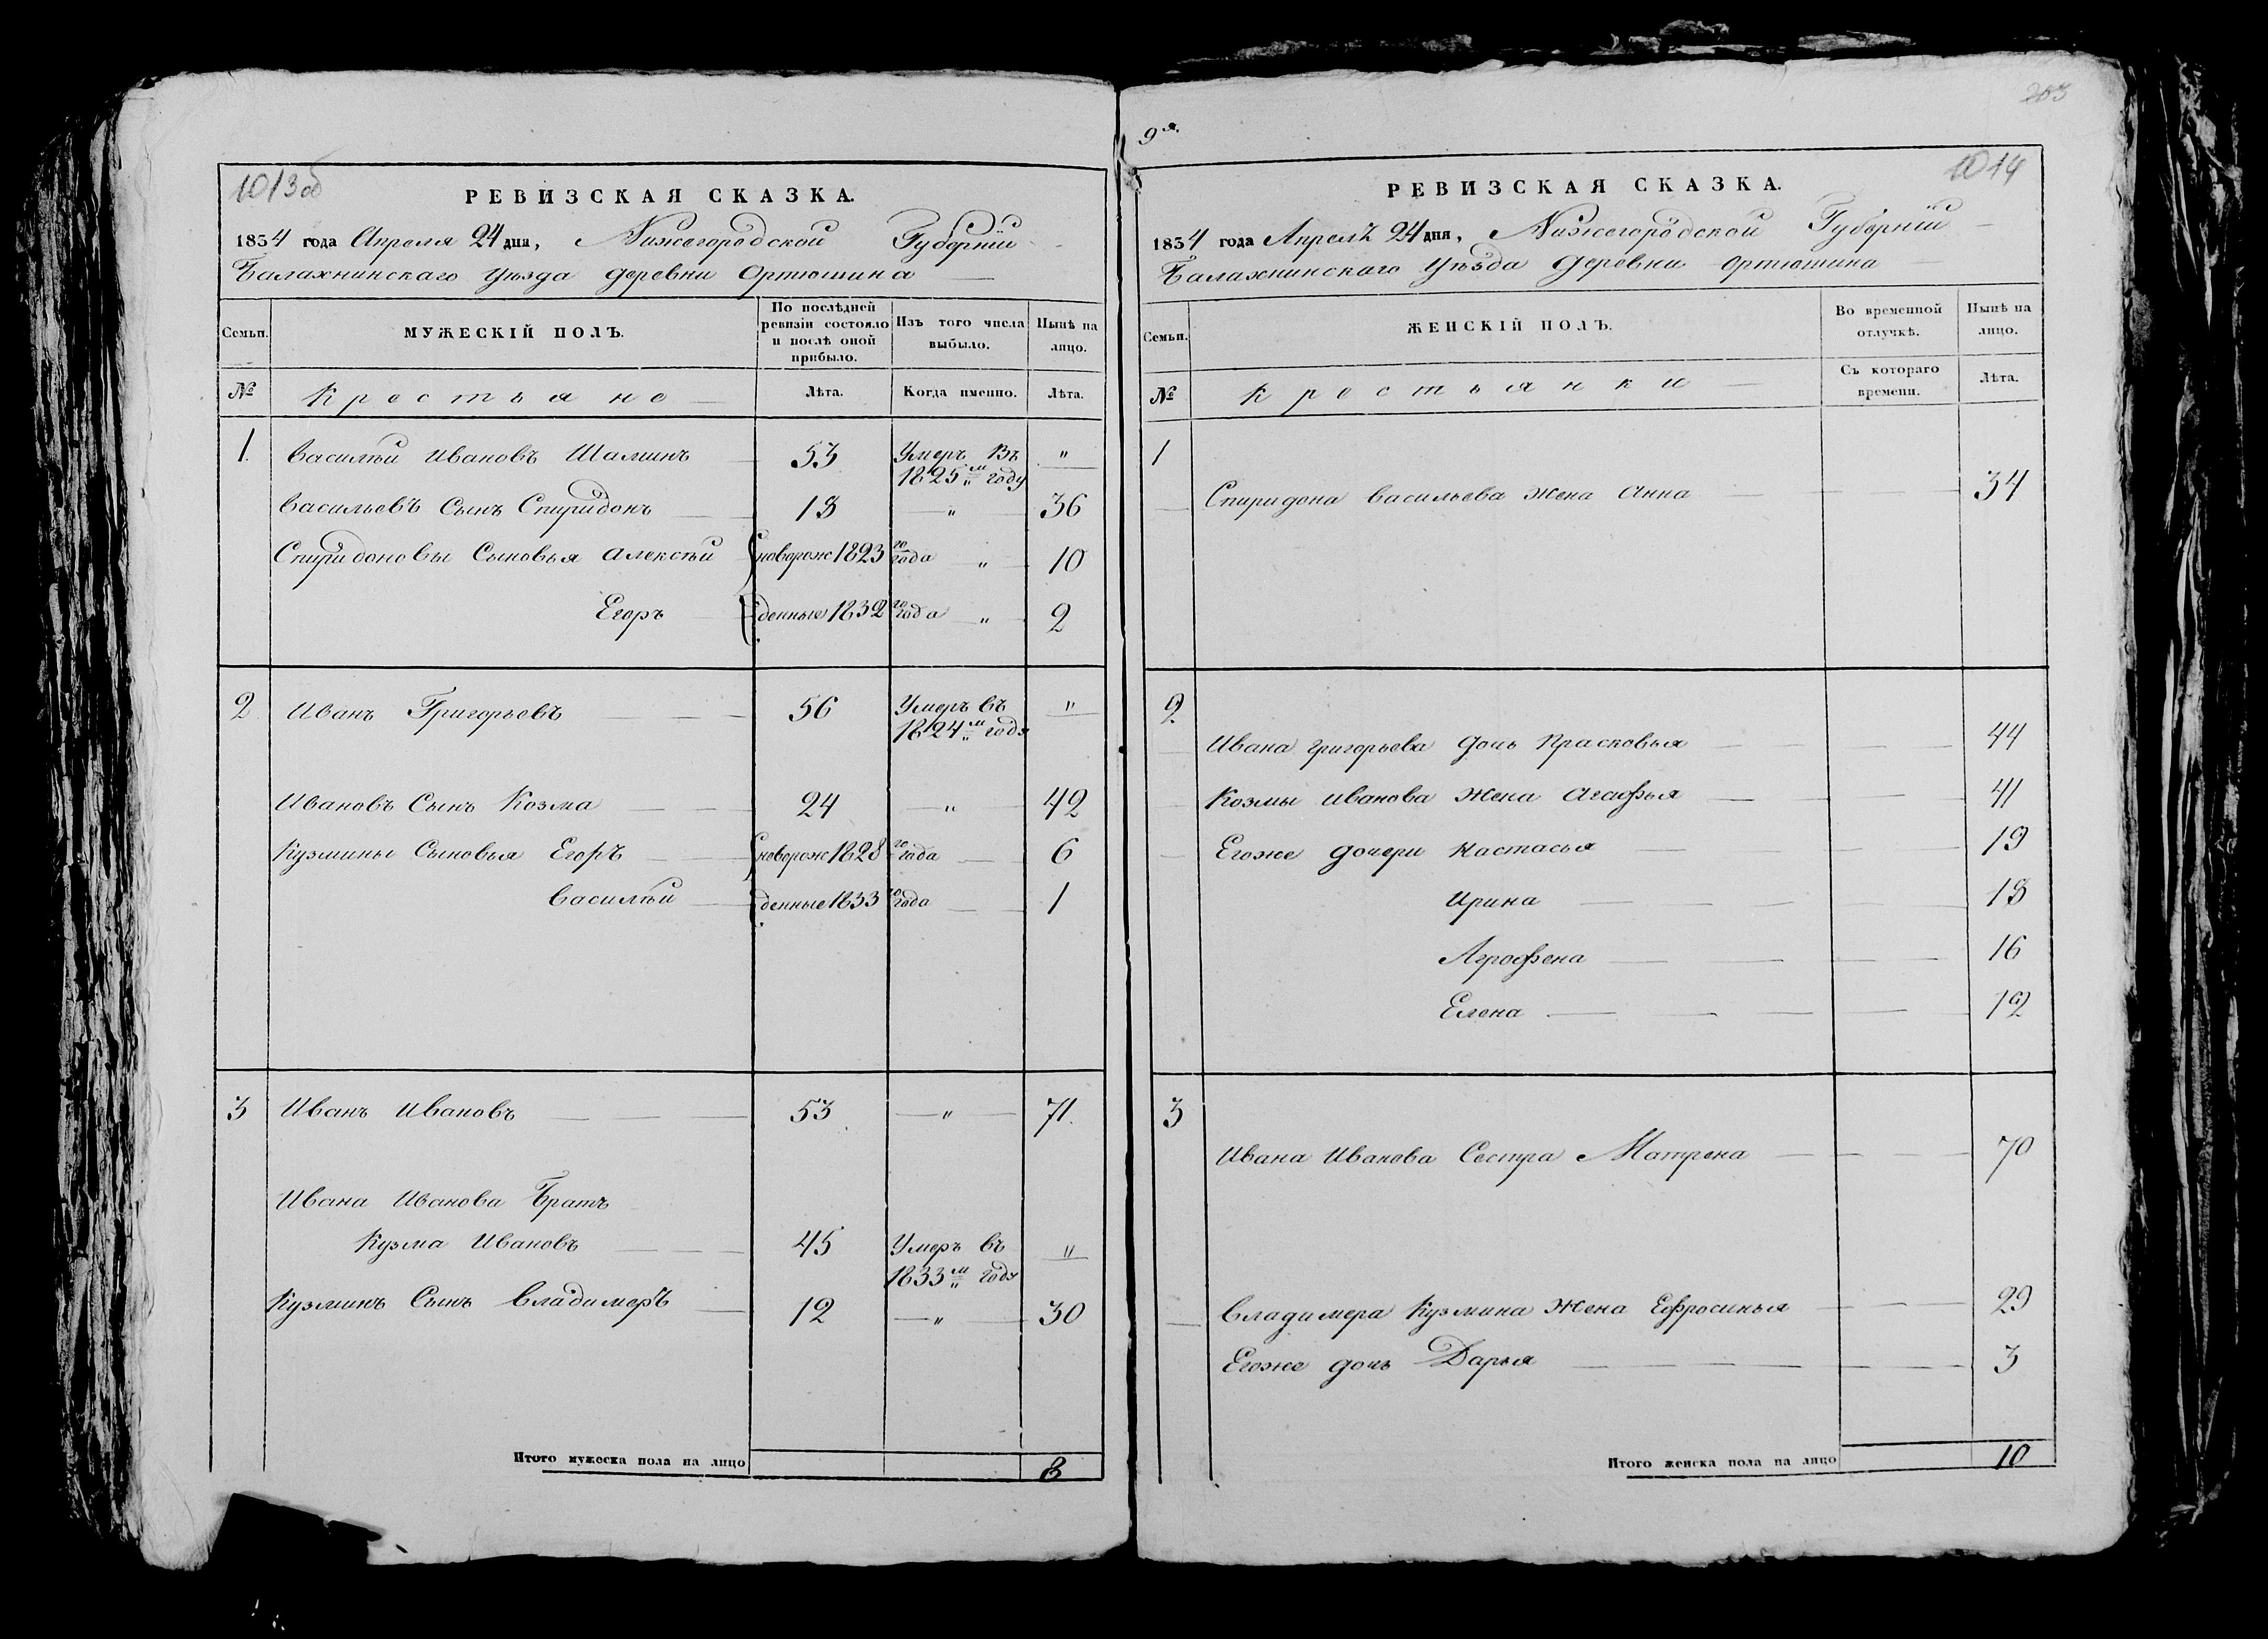 1013 об
РЕВИЗСКАЯ СКАЗКА.
1834 года Апреля 24 дня, Нижегородской Губернiи
Балахнинскаго уѣзда деревни Ортюшина
Семьи. МУЖЕСКIЙ ПОЛЪ. По послѣдней ревизiи состояло и послѣ оной прибыло. Изъ того числа выбыло. Нынѣ на лицо.
№ Крестьяне Лѣта. Когда именно. Лѣта.
1. Василѣй Ивановъ Шалинъ 53 Умеръ въ 1825м году "
Васильевъ Сынъ Спиридонъ 18 " 36
Спиридоновы Сыновья Алексѣй новорож 1823го года " 10
Егоръ денные 1832го года " 2
2 Иванъ Григорьевъ 56 Умеръ въ 1824м году "
Ивановъ Сынъ Козма 24 " 42
Кузмины Сыновья Егоръ новорож 1828го года 6
Василѣй денные 1833го года 1
3 Иванъ Ивановъ 53 " 71.
Ивана Иванова Братъ
Кузма Ивановъ 45 Умеръ въ 1833м году "
Кузминъ Сынъ Владимеръ 12 " 30
Итого мужеска пола на лицо 8
9я.
203
1014
РЕВИЗСКАЯ СКАЗКА.
1834 года Апрелъ 24 дня, Нижегородской Губернiи
Балахнинскаго уѣзда деревни Ортюшина
Семьи. ЖЕНСКIЙ ПОЛЪ. Во временной отлучкѣ. Нынѣ на лицо.
№ Крестьянки Съ котораго времени. Лѣта.
1
Спиридона Васильева Жена Анна 34
2.
Ивана Григорьева дочь Прасковья 44
Козмы Иванова Жена Агафья 41
Егоже дочери Настасья 19
Ирина 18
Агрофена 16
Елена 12
3
Ивана Иванова Сестра Матрена 70
Владимера Кузмина Жена Ефросинья 29
Егоже дочь Дарья 3
Итого женска пола на лицо 10